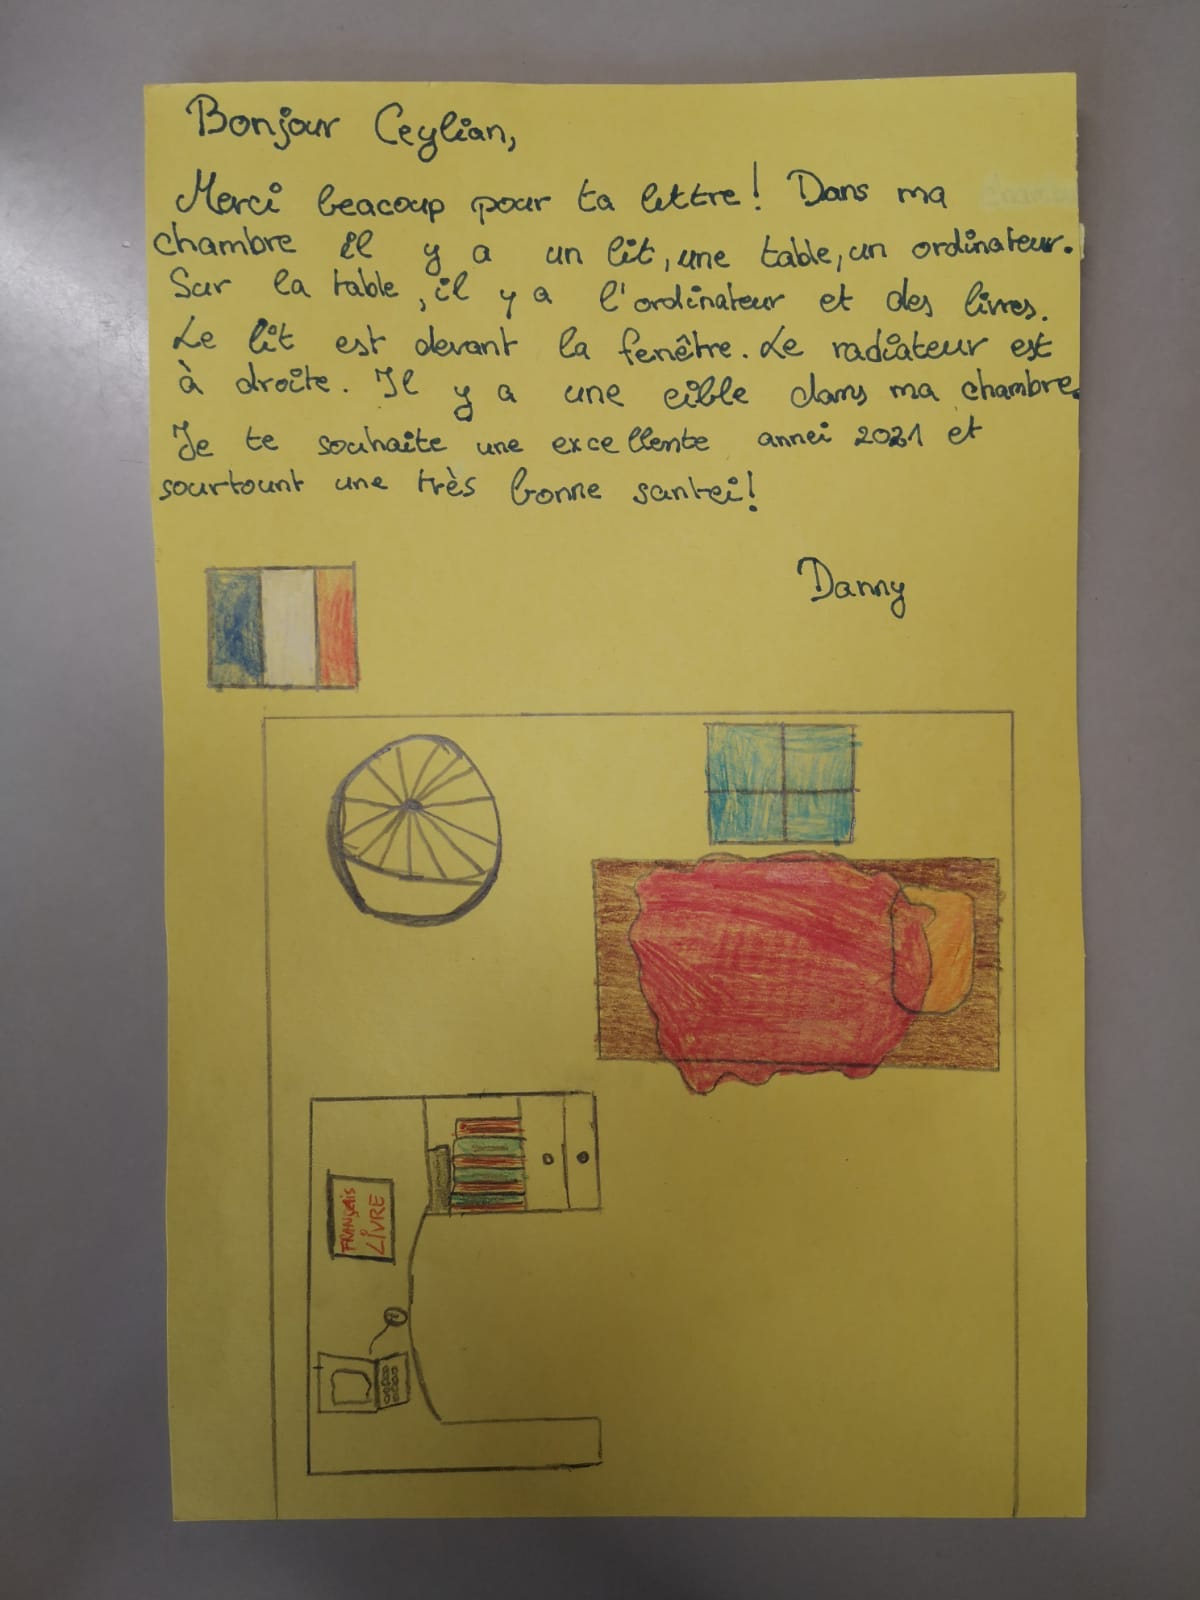 Bonjour Ceylian,
Merci beacoup pour ta lettre! Dans ma
chambre il y a un lit, une table, un ordinateur.
Sur la table, il y a l'ordinateur et des livres.
Le lit est devant la fenêtre. Le radiateur est
à droite. Il y a une cible dans ma chambre.
Je te souhaite une excellente annei 2021 et
sourtount une très bonne santei!
Danny
FRANÇAIS
LIVRE